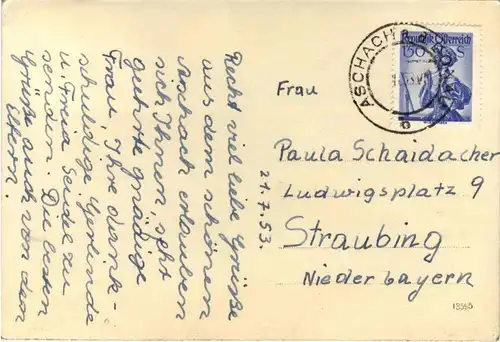 Recht viel liebe Grüße
aus dem schönen
Aschach erlauben
sich Ihnen, sehr
geehrte gnädige
Frau, Ihre dank-
schuldige Gerlinde
u. Freia Seidel zu
senden. Die besten
Grüße auch von den
Eltern.
21.7.53.
Republik Österreich
1.50 S
ASCHACH
Frau
Paula Schaidacher
Ludwigsplatz 9
Straubing
Niederbayern